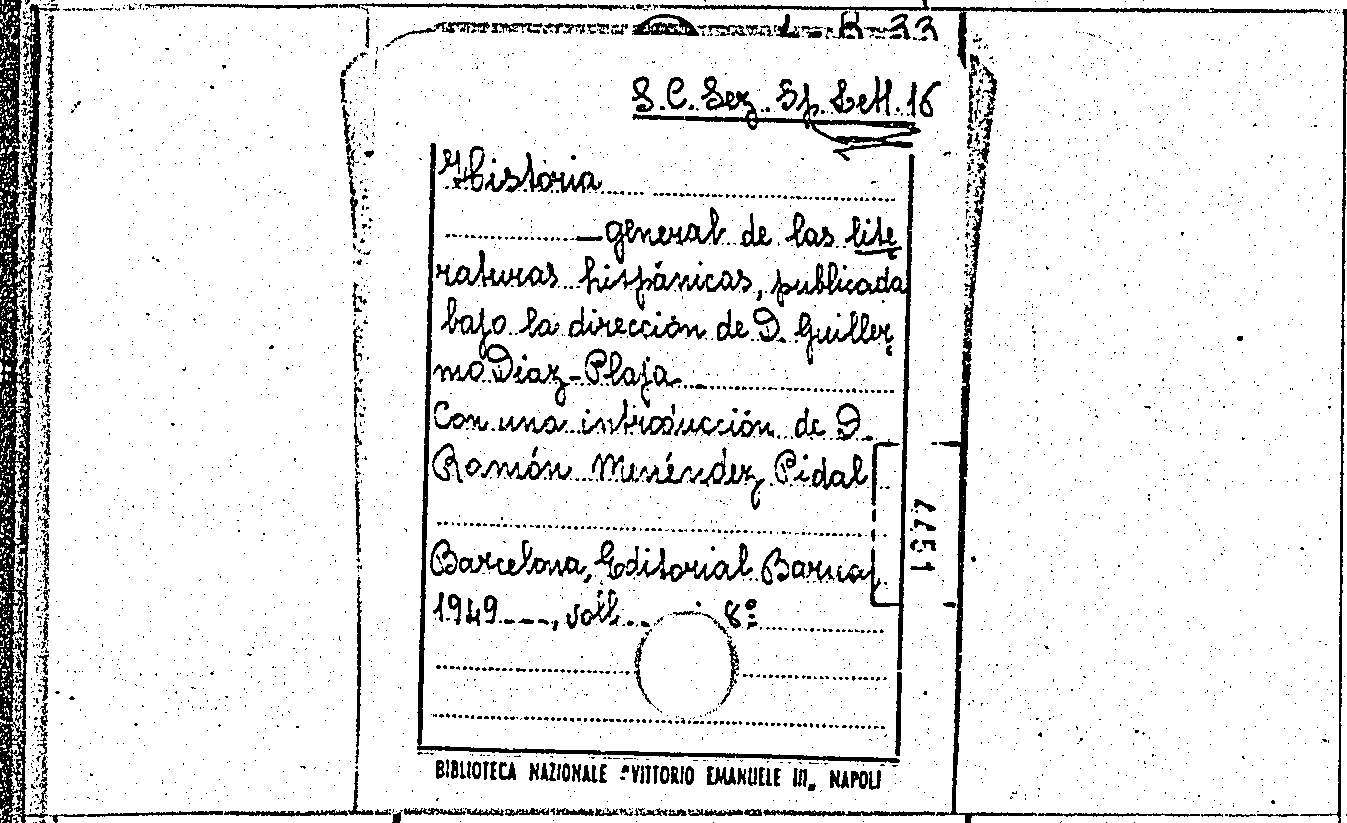 S.C. Sez. Sp. Lett. 16
Historia
general de las lite
raturas hispánicas, publicada
bajo la dirección de D. Guiller,
mo Díaz-Plaja
Con una introducción de D.
Ramón Menéndez Pidal
Barcelona, Editorial Barna,
1949---, voll. 8º
BIBLIOTECA NAZIONALE "VITTORIO EMANUELE III„ NAPOLI